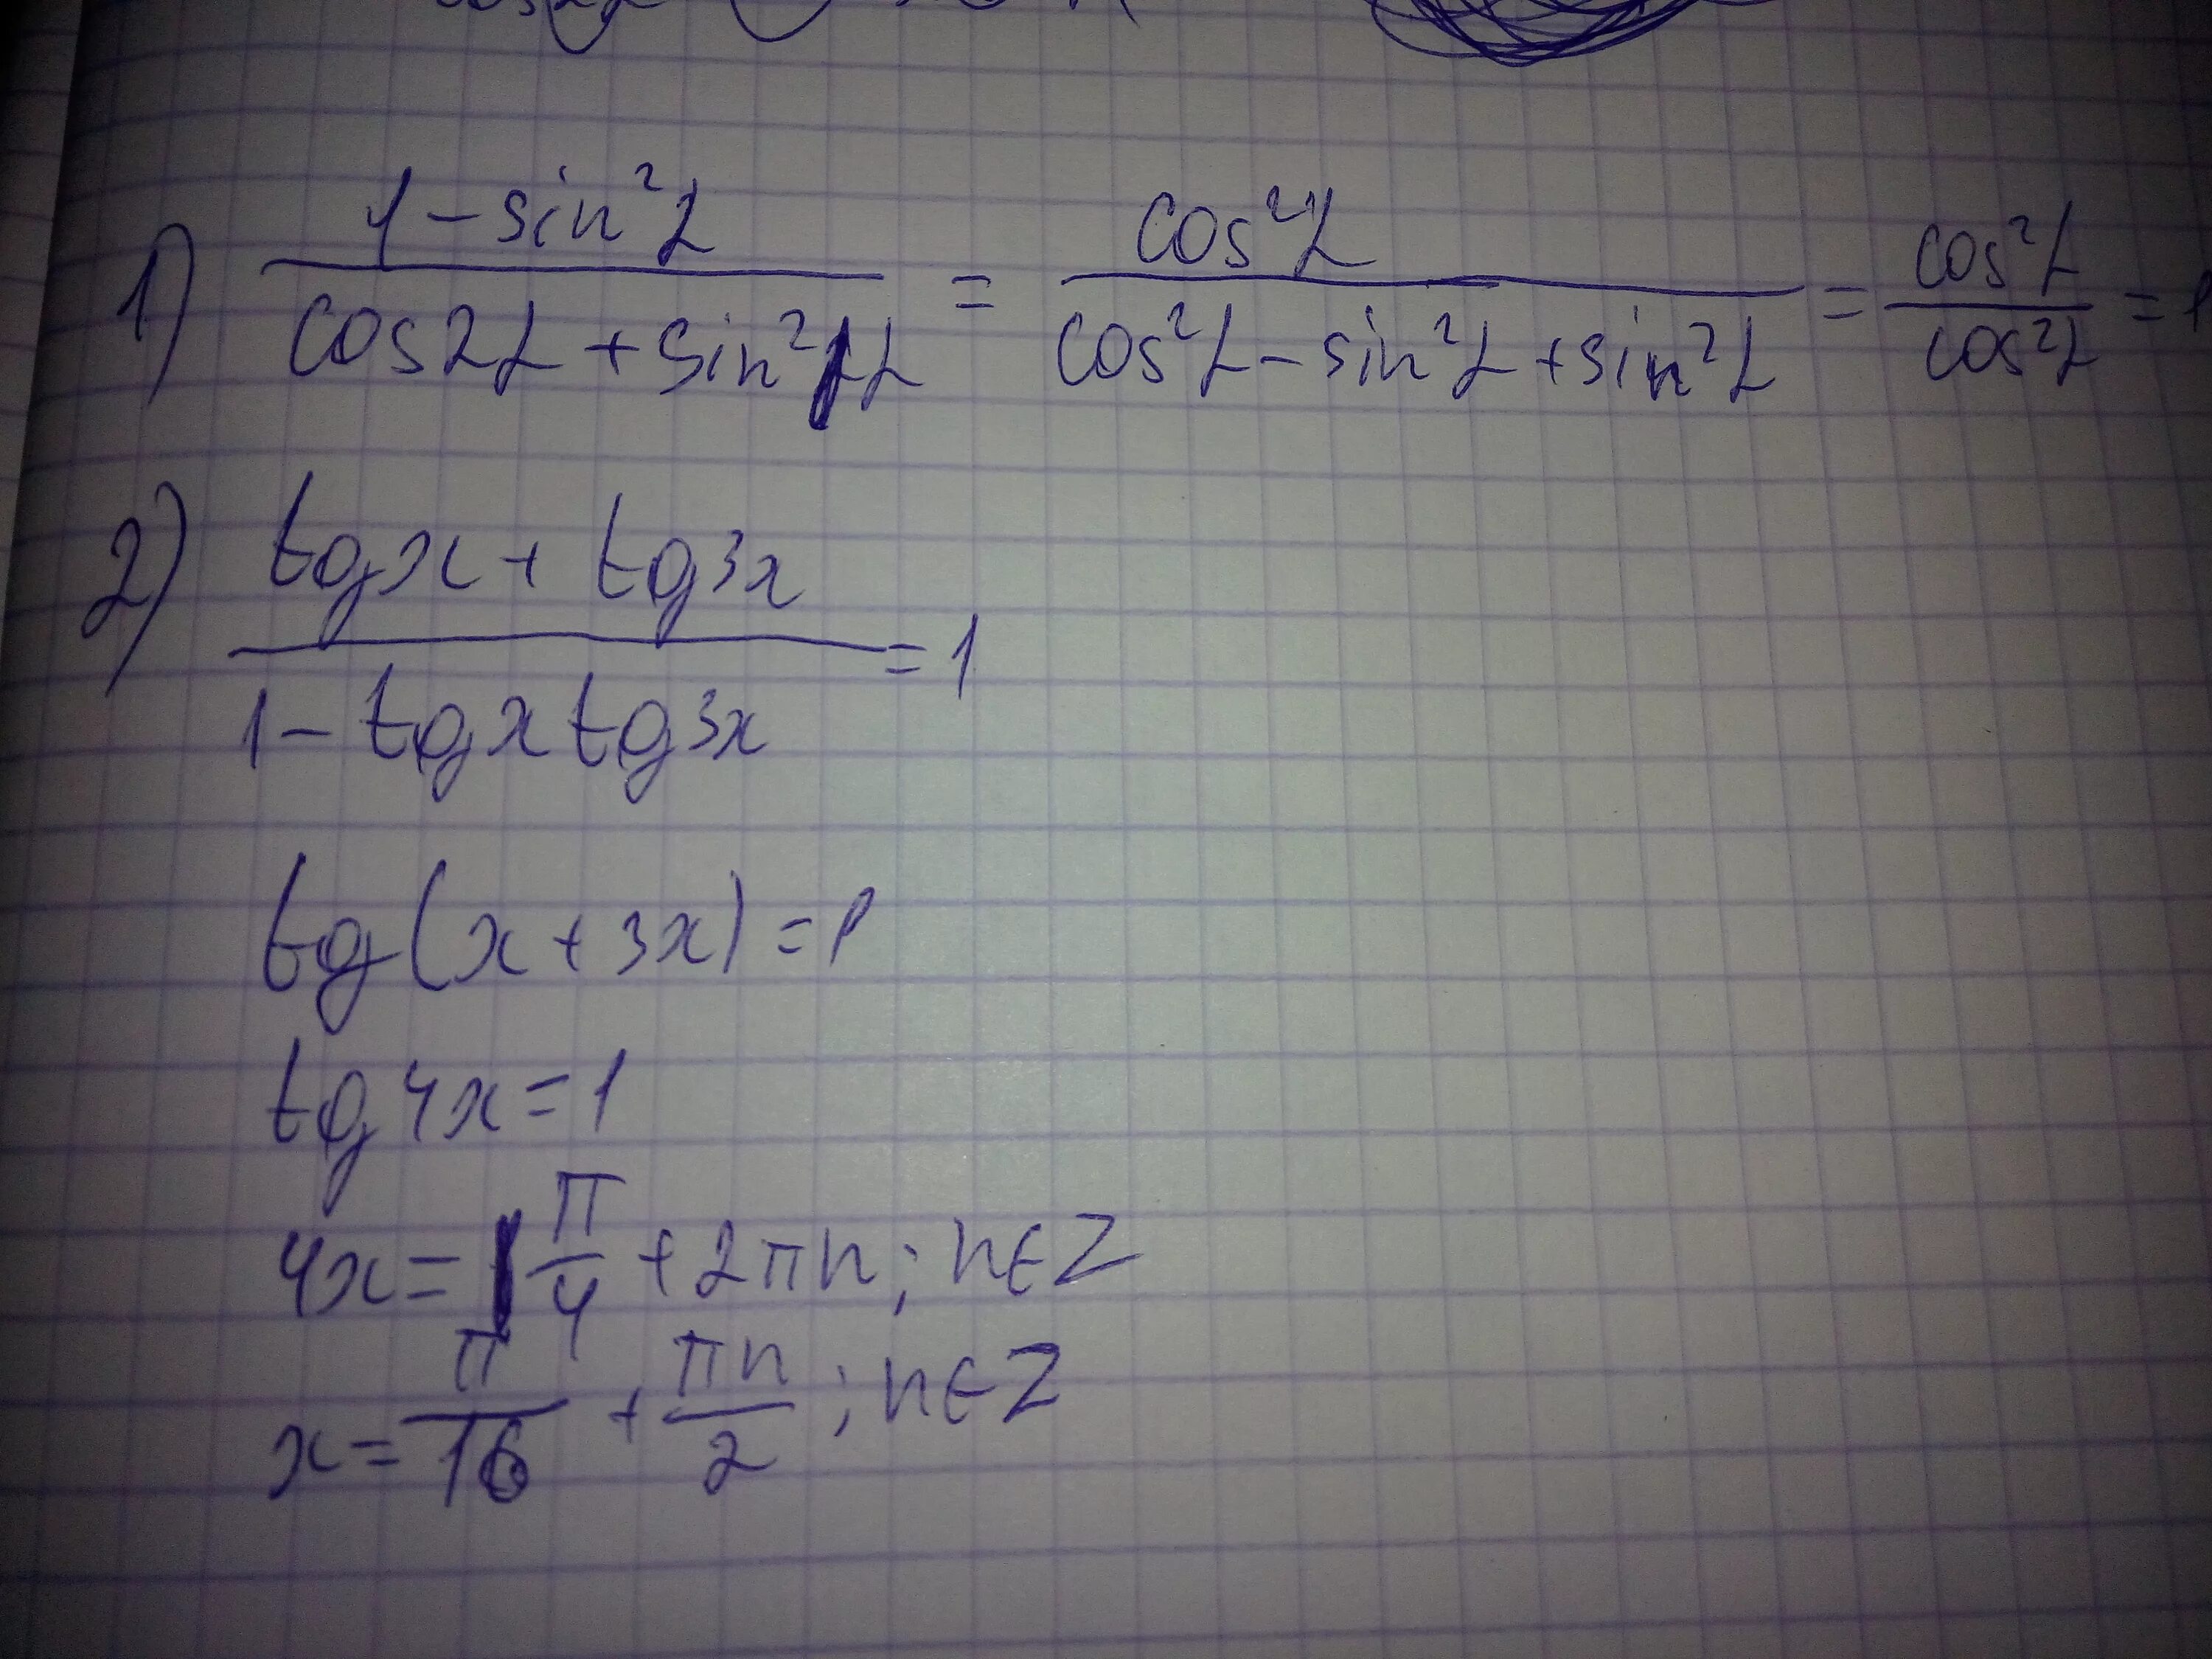 1) (1 - sin²α)/(cos2α + sin²α) = cos²α/(cos²α - sin²α + sin²α) = cos²α/cos²α = 1
2) (tgx + tg3x)/(1 - tgx tg3x) = 1
tg(x + 3x) = 1
tg4x = 1
4x = π/4 + 2πn; n∈Z
x = π/16 + πn/2; n∈Z